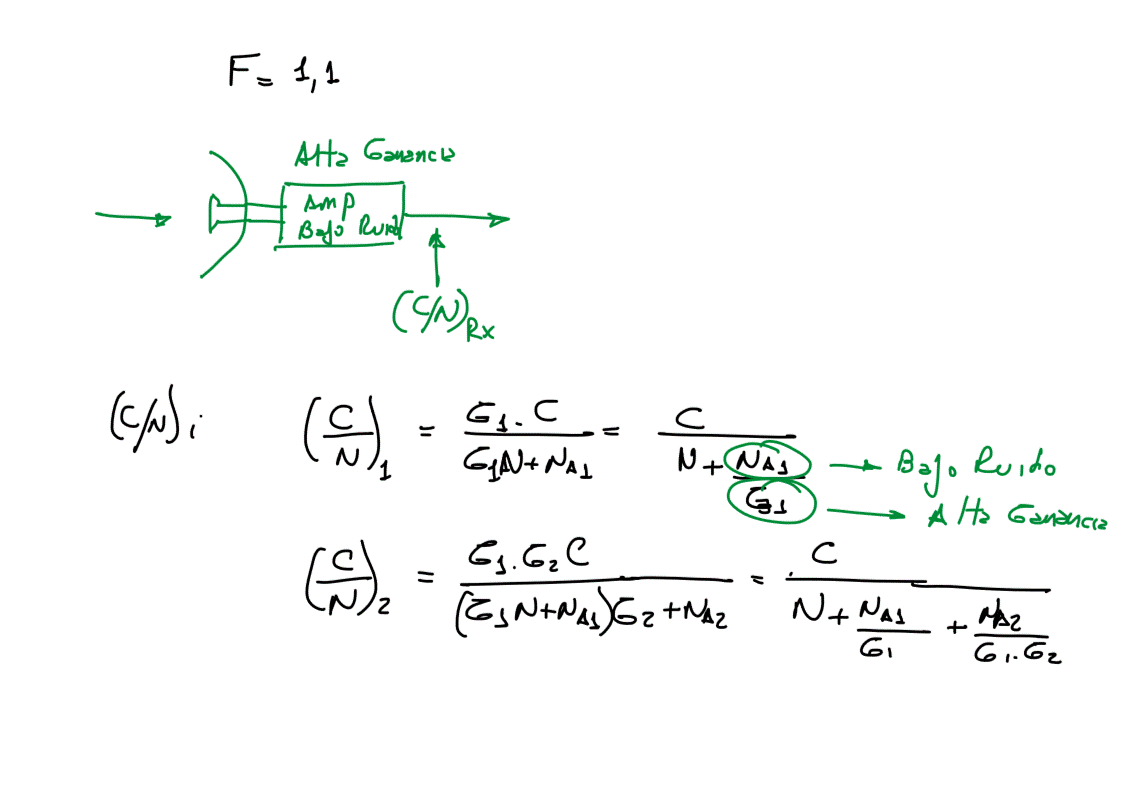 F = 1,1
Alta Ganancia
Amp
Bajo Ruido
(C/N)Rx
(C/N)i
(C/N)1 = G1.C / (G1N+NA1) = C / (N + NA1/G1)
Bajo Ruido
Alta Ganancia
(C/N)2 = G1.G2 C / ((G1N+NA1)G2+NA2) = C / (N + NA1/G1 + NA2/G1.G2)